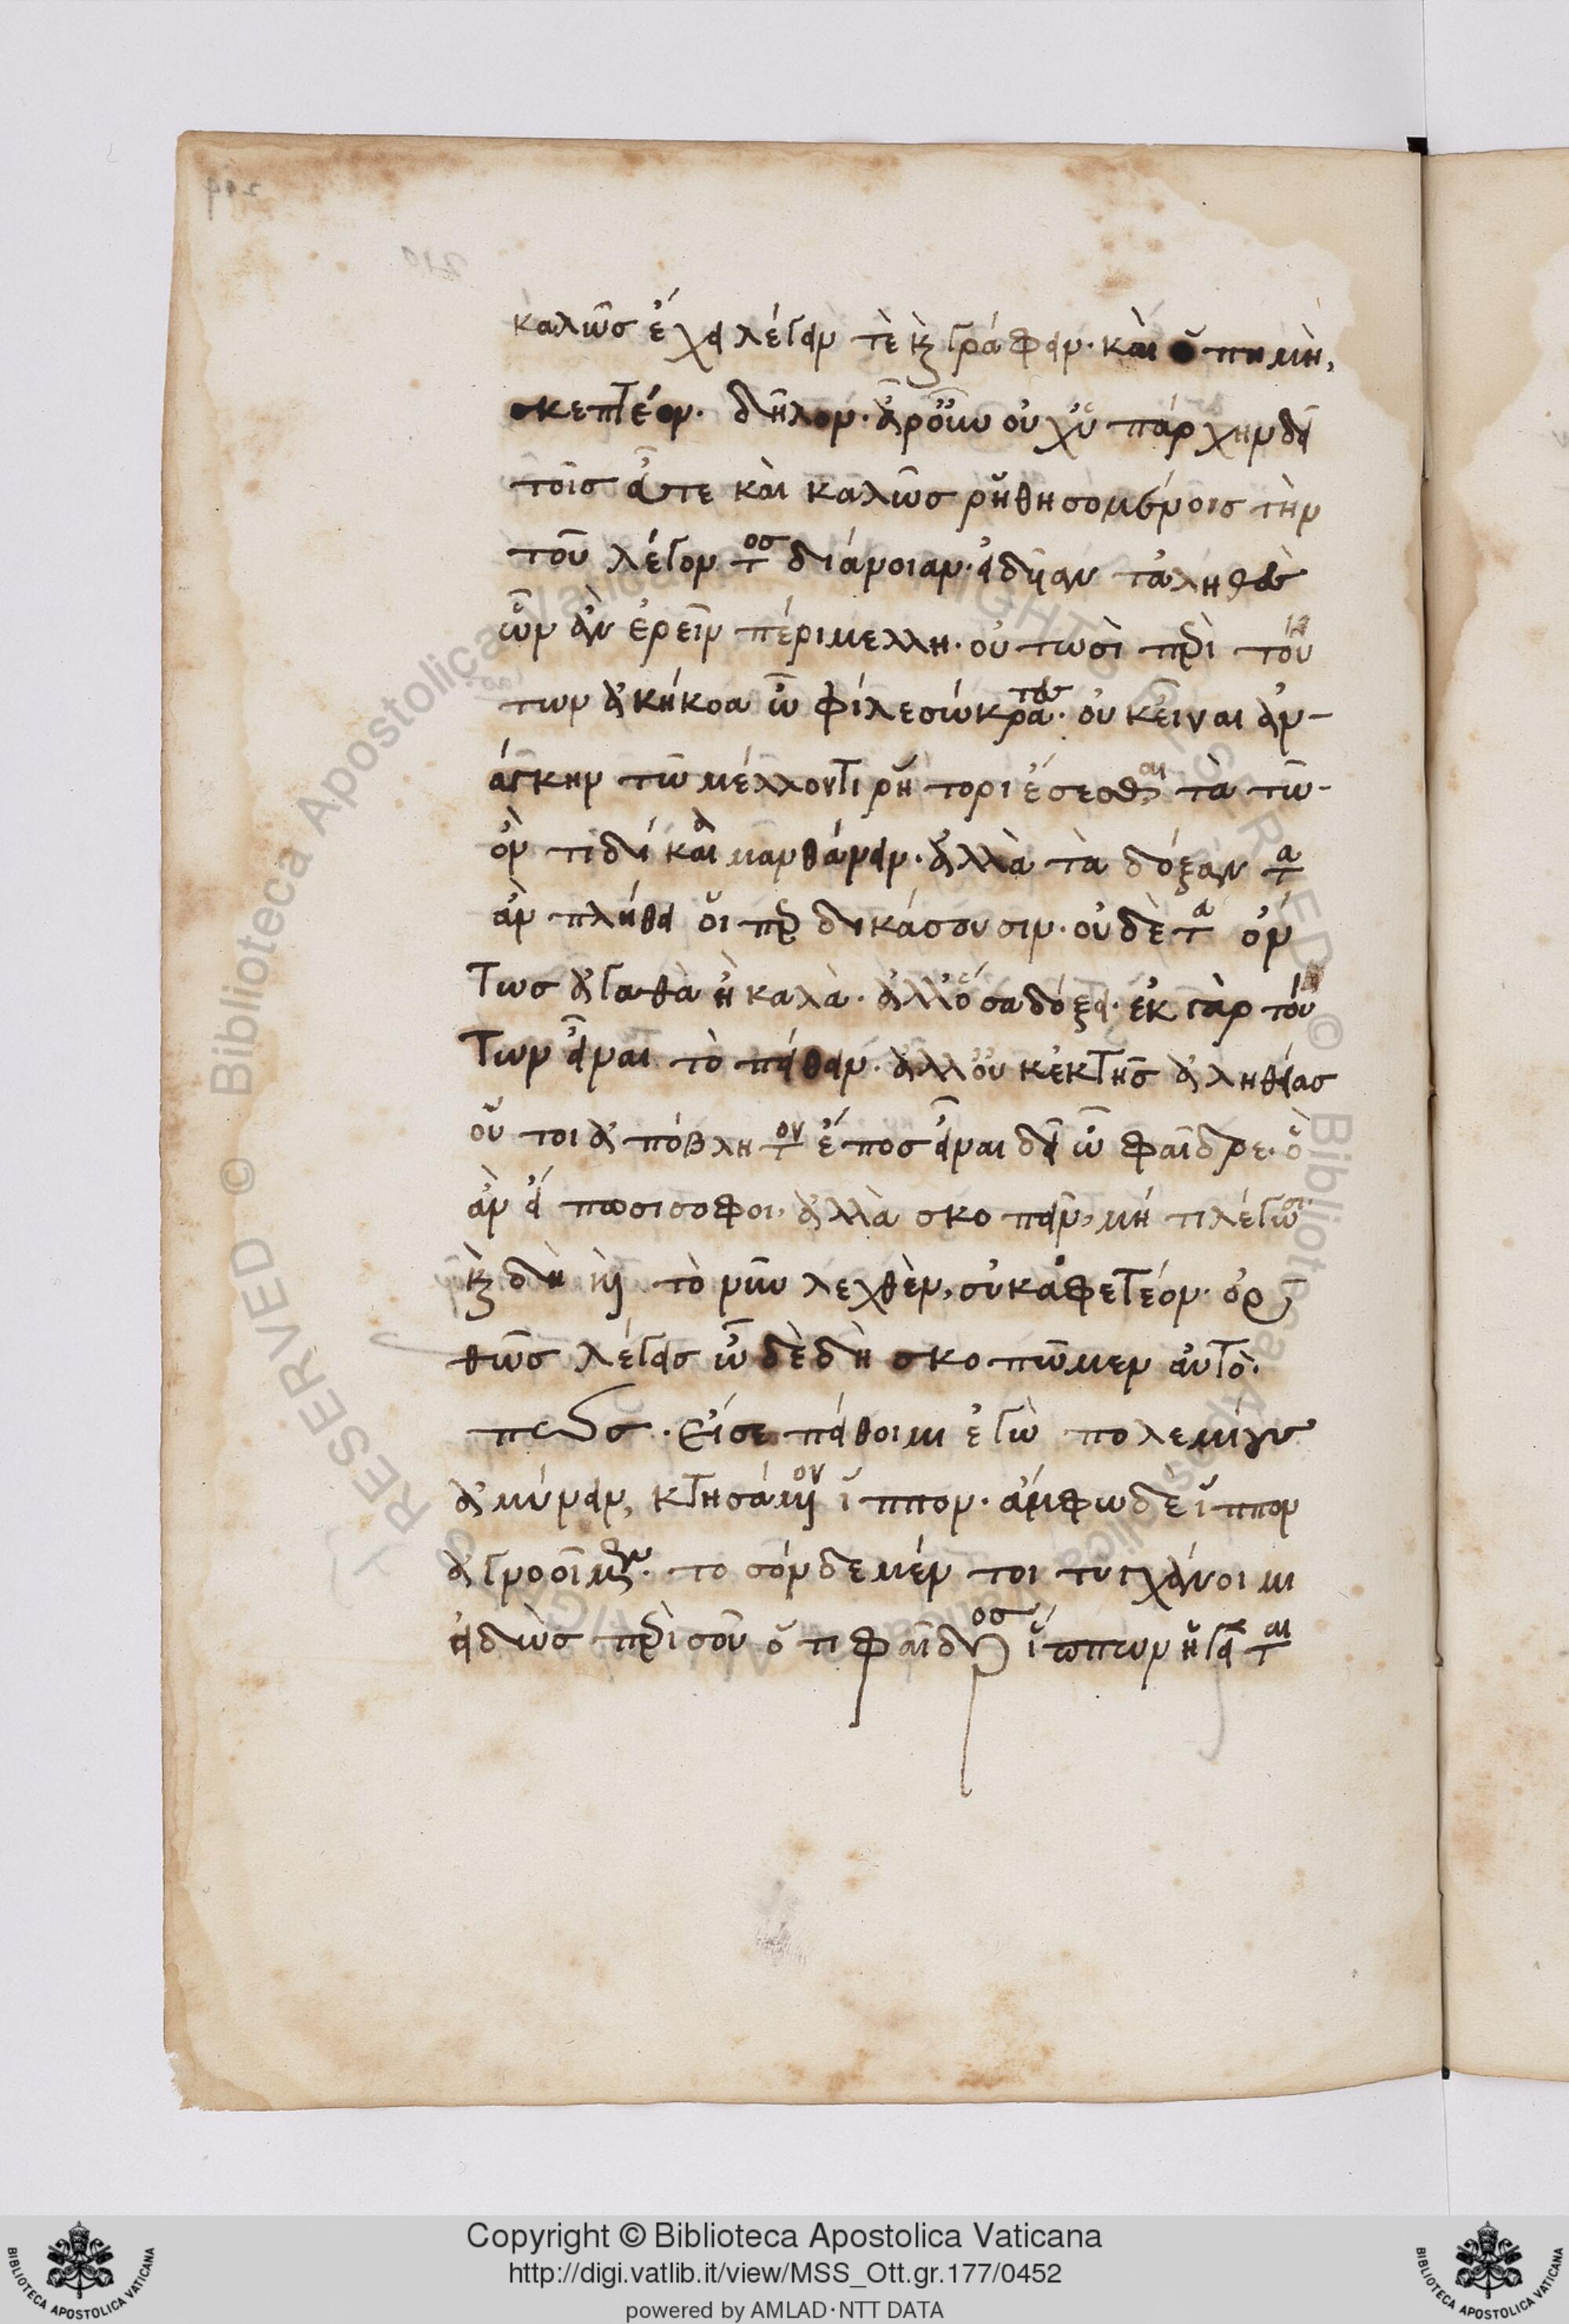 καλῶσ ἔχει λέγειν τὲ κỳ γράφειν· καὶ ὅπη μὴ,
σκεπτέον. δῆλον· ἆρ οὖν οὐχ ὑπάρχειν δεῖ
τοῖσ εὖ τε καὶ καλῶσ ῥηθησομένοισ τὴν
τοῦ λέγοντοσ διάνοιαν· εἰδυῖαν τἀληθὲσ
ὧν ἂν ἐρεῖν πέρι μέλλη· οὑτωσὶ περὶ τού
των ἀκήκοα ὦ φίλε σώκρατεσ· οὐκ εἶναι ἀν-
άγκην τῶ μέλλοντι ῥήτορι ἔσεσθαι τὰ τῶ-
ὄντι δίκαια μανθάνειν· ἀλλὰ τὰ δόξαντα
ἂν πλήθει οἵπερ δικάσουσιν· οὐδὲ τὰ ὄν
τωσ ἀγαθὰ ἢ καλὰ· ἀλλ ὅσα δόξει· ἐκ γὰρ τού
των εἶναι τὸ πείθειν· ἀλλ οὐκ ἐκ τῆσ ἀληθείασ
οὔτοι ἀπόβλητον ἔποσ εἶναι δεῖ ὦ φαῖδρε· ὃ
ἂν εἴπωσι σοφοι· ἀλλὰ σκοπεῖν, μή τι λέγωσι·
κỳ δὴ κỳ τὸ νῦν λεχθὲν, οὐκ ἀφετέον· ὀρ
θῶσ λέγεισ ὧδε δὴ σκοπῶμεν αὐτὸ·
πῶσ· Εἴ σε πείθοιμι ἐγὼ πολεμίουσ
ἀμύνειν, κτησάμενον ἵππον· ἄμφω δὲ ἵππον
ἀγνοοῖμεν· τοσόνδε μέν τοι τυγχάνοιμι
εἰδὼσ περὶ σοῦ ὅτι φαῖδροσ ἵππον ἡγεῖται
Copyright © Biblioteca Apostolica Vaticana
http://digi.vatlib.it/view/MSS_Ott.gr.177/0452
powered by AMLAD·NTT DATA
BIBLIOTECA APOSTOLICA VATICANA
BIBLIOTECA APOSTOLICA VATICANA